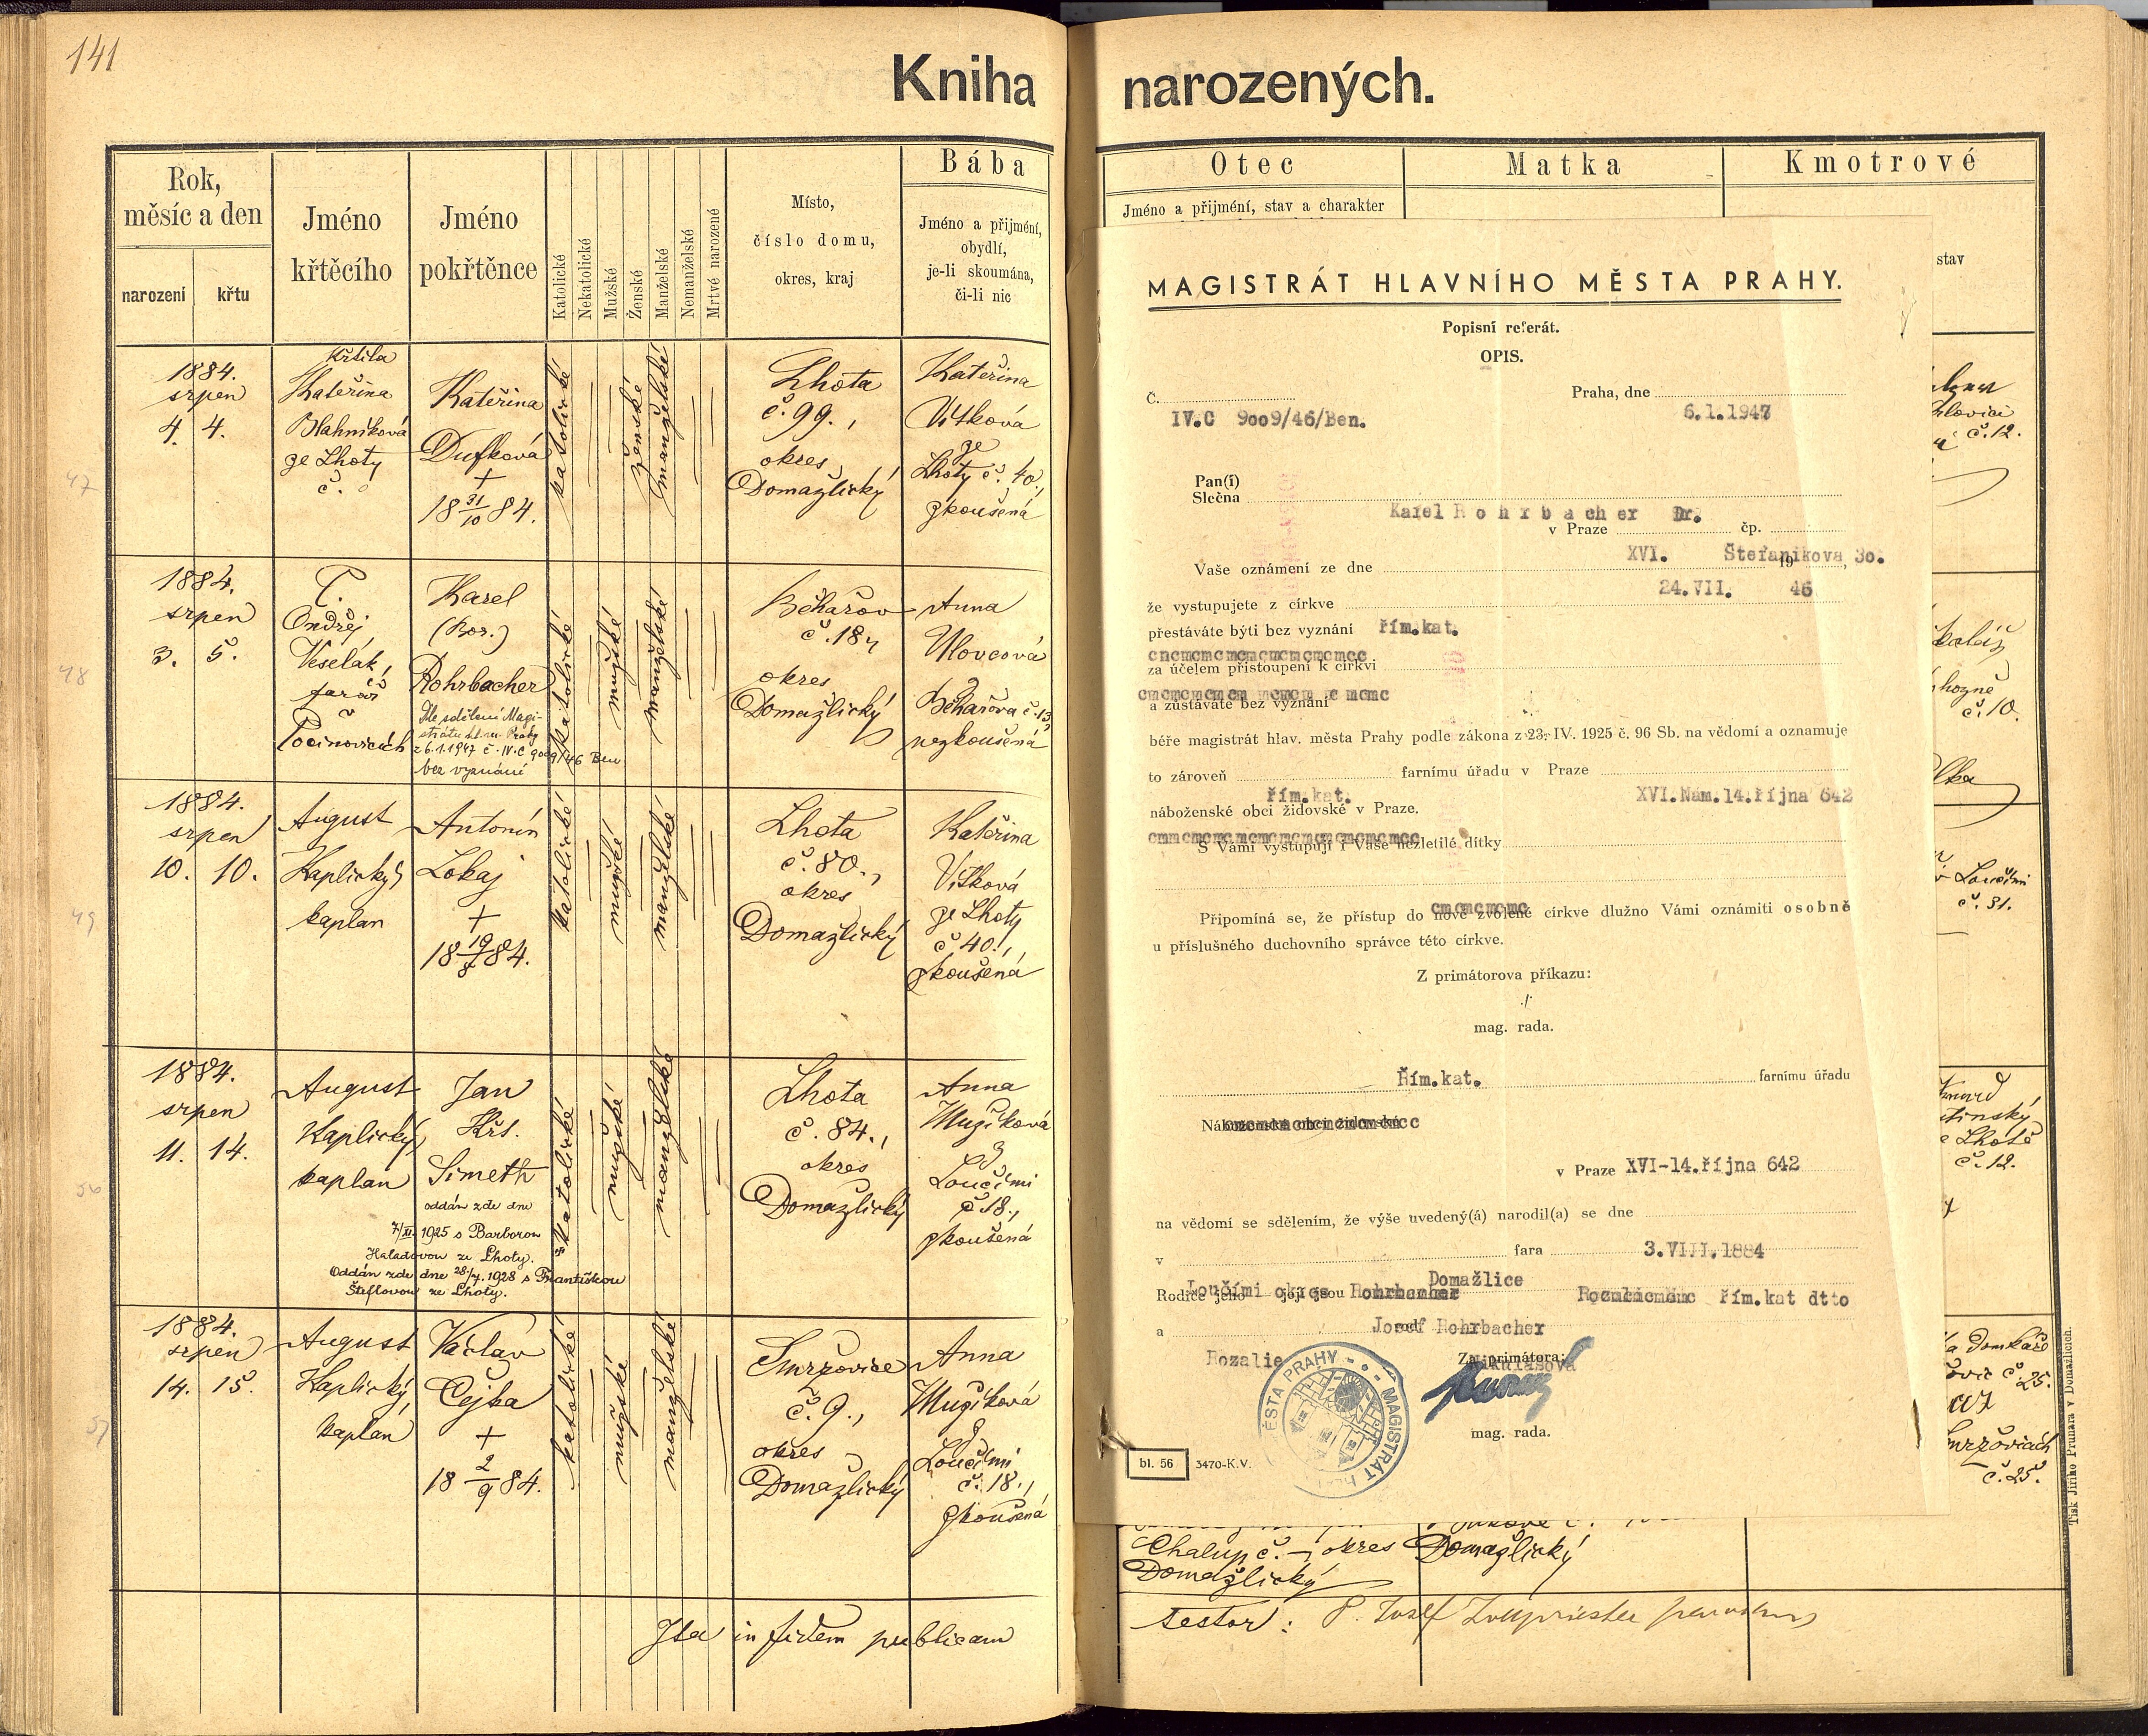 141
Kniha narozených.
Rok,
měsíc a den
narození
křtu
Jméno
křtěcího
Jméno
pokřtěnce
Katolické
Nekatolické
Mužské
Ženské
Manželské
Nemanželské
Mrtvé narozené
Místo,
číslo domu,
okres, kraj
Bába
Jméno a přijmení,
obydlí,
je-li skoumána,
či-li nic
47
1884.
srpen
4. 4.
Křtila
Kateřina
Blahníková
ze Lhoty
č.
Kateřina
Dufková
+
18 31/10 84.
katolické
ženské
manželské
Lhota
č. 99.,
okres
Domažlický
Kateřina
Vítková
ze
Lhoty č. 40.,
zkoušená
48
1884.
srpen
3. 5.
P.
Ondřej
Veselák,
farář
v
Počinovicích
Karel
(Bor.)
Rohrbacher
Dle sdělení Magi-
strátu hl. m. Prahy
z 6.1.1947 č. IV.C 9009/46 Ben
bez vyznání
katolické
mužské
manželské
Běhařov
č. 18,
okres
Domažlický
Anna
Ulovcová
z
Běhařova č. 13,
nezkoušená
49
1884.
srpen
10. 10.
August
Kaplický,
kaplan
Antonín
Lokaj
+
18 19/8 84.
katolické
mužské
manželské
Lhota
č. 80.,
okres
Domažlický
Kateřina
Vítková
ze Lhoty
č 40.,
zkoušená
50
1884.
srpen
11. 14.
August
Kaplický,
kaplan
Jan
Křt.
Simeth
oddán zde dne
7/XI. 1925 s Barborou
Haladovou ze Lhoty.
Oddán zde dne 28./4. 1928 s Františkou
Šteflovou ze Lhoty.
katolické
mužské
manželské
Lhota
č. 84.,
okres
Domažlický
Anna
Mužíková
z
Loučími
č 18.,
zkoušená
51
1884.
srpen
14. 15.
August
Kaplický,
kaplan
Václav
Čejka
+
18 2/9 84.
katolické
mužské
manželské
Smržovice
č. 9.,
okres
Domažlický
Anna
Mužíková
z
Loučími
č. 18.,
zkoušená
Ita in fidem publicam
Otec
Matka
Kmotrové
Jméno a přijmení, stav a charakter
stav
MAGISTRÁT HLAVNÍHO MĚSTA PRAHY.
Popisní referát.
OPIS.
Č.
IV.C 9009/46/Ben.
Praha, dne
6.1.1947
Pan(í)
Slečna
Karel Rohrbacher Dr.
v Praze čp.
XVI. Štefanikova 30.
Vaše oznámení ze dne 19
24.VII. 46
že vystupujete z církve
přestáváte býti bez vyznání řím.kat.
za účelem přistoupení k církvi
a zůstáváte bez vyznání
béře magistrát hlav. města Prahy podle zákona z 23. IV. 1925 č. 96 Sb. na vědomí a oznamuje
to zároveň farnímu úřadu v Praze
řím.kat. XVI.Nám.14.října 642
náboženské obci židovské v Praze.
S Vámi vystupují i Vaše nezletilé dítky
Připomíná se, že přístup do nově zvolené církve dlužno Vámi oznámiti osobně
u příslušného duchovního správce této církve.
Z primátorova příkazu:
./
mag. rada.
Řím.kat. farnímu úřadu
Náboženské obci židovské
v Praze XVI-14.října 642
na vědomí se sdělením, že výše uvedený(á) narodil(a) se dne
v fara 3.VIII.1884
Loučími okres Domažlice
Rodiče jeho její jsou Rohrbacher řím.kat dtto
a rod. Josef Rohrbacher
Rozalie Mikulášová
Za primátora:
mag. rada.
MAGISTRÁT HL. MĚSTA PRAHY
bl. 56
3470-K.V.
č. 12.
č. 10.
v Loučími
č. 31.
ze Lhotě
č. 12.
č. 25.
č. 25.
Chalup č. – okres
Domažlický
Domažlický
testor: P. Josef
Tisk Jiřího Prunara v Domažlicích.